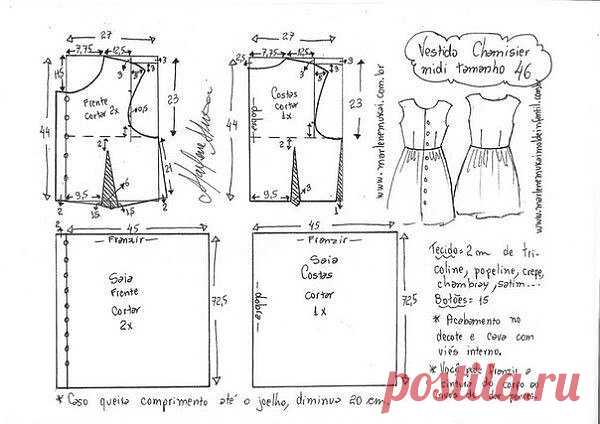 Vestido Chamisier
midi tamanho 46
www.marlenemukai.com.br
www.marlenemukaimoldeinfantil.com.br
27
7,75 12,5
3
3
23
44
Frente
Cortar 2x
0,5
2
21
9,5
6
2
1,5
2
27
7,75 12,5
3
3
23
44
Costas
cortar
1x
dobra
2
9,5
3
1
2
45
Franzir
Saia
Frente
Cortar
2x
72,5
45
Franzir
Saia
Costas
Cortar
1x
dobra
72,5
Tecido = 2 m de tri-
coline, popeline, crepe,
chambray, satim...
Botões = 15
* Acabamento no
decote e cava com
viés interno.
* Você pode franzir a
cintura do corpo ao
* Caso queira comprimento até o joelho, diminua 20 cm.
postila.ru